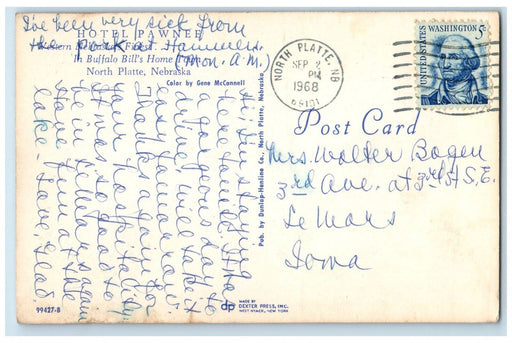 I've been very sick from
the pork at Hammer.
Mon. A.M.
HOTEL PAWNEE
In Buffalo Bill's Home Town
North Platte, Nebraska
Color by Gene McConnell
Hi! I'm staying
here tonite. It was
a gorgeous day to
drive. Will take it
easy tomorrow.
Thanks again for
your hospitality.
It was so good to
see you all again.
Have fun at the
lake. Love,
99427-B
Pub. by Dunlap-Hanline Co., North Platte, Nebraska
MADE BY
dp DEXTER PRESS, INC.
WEST NYACK, NEW YORK
NORTH PLATTE, NB
SEP 2
PM
1968
69101
UNITED STATES
WASHINGTON 5c
Post Card
Mrs. Walter Bogen
3rd Ave. at 3rd St S.E.
Le Mars
Iowa